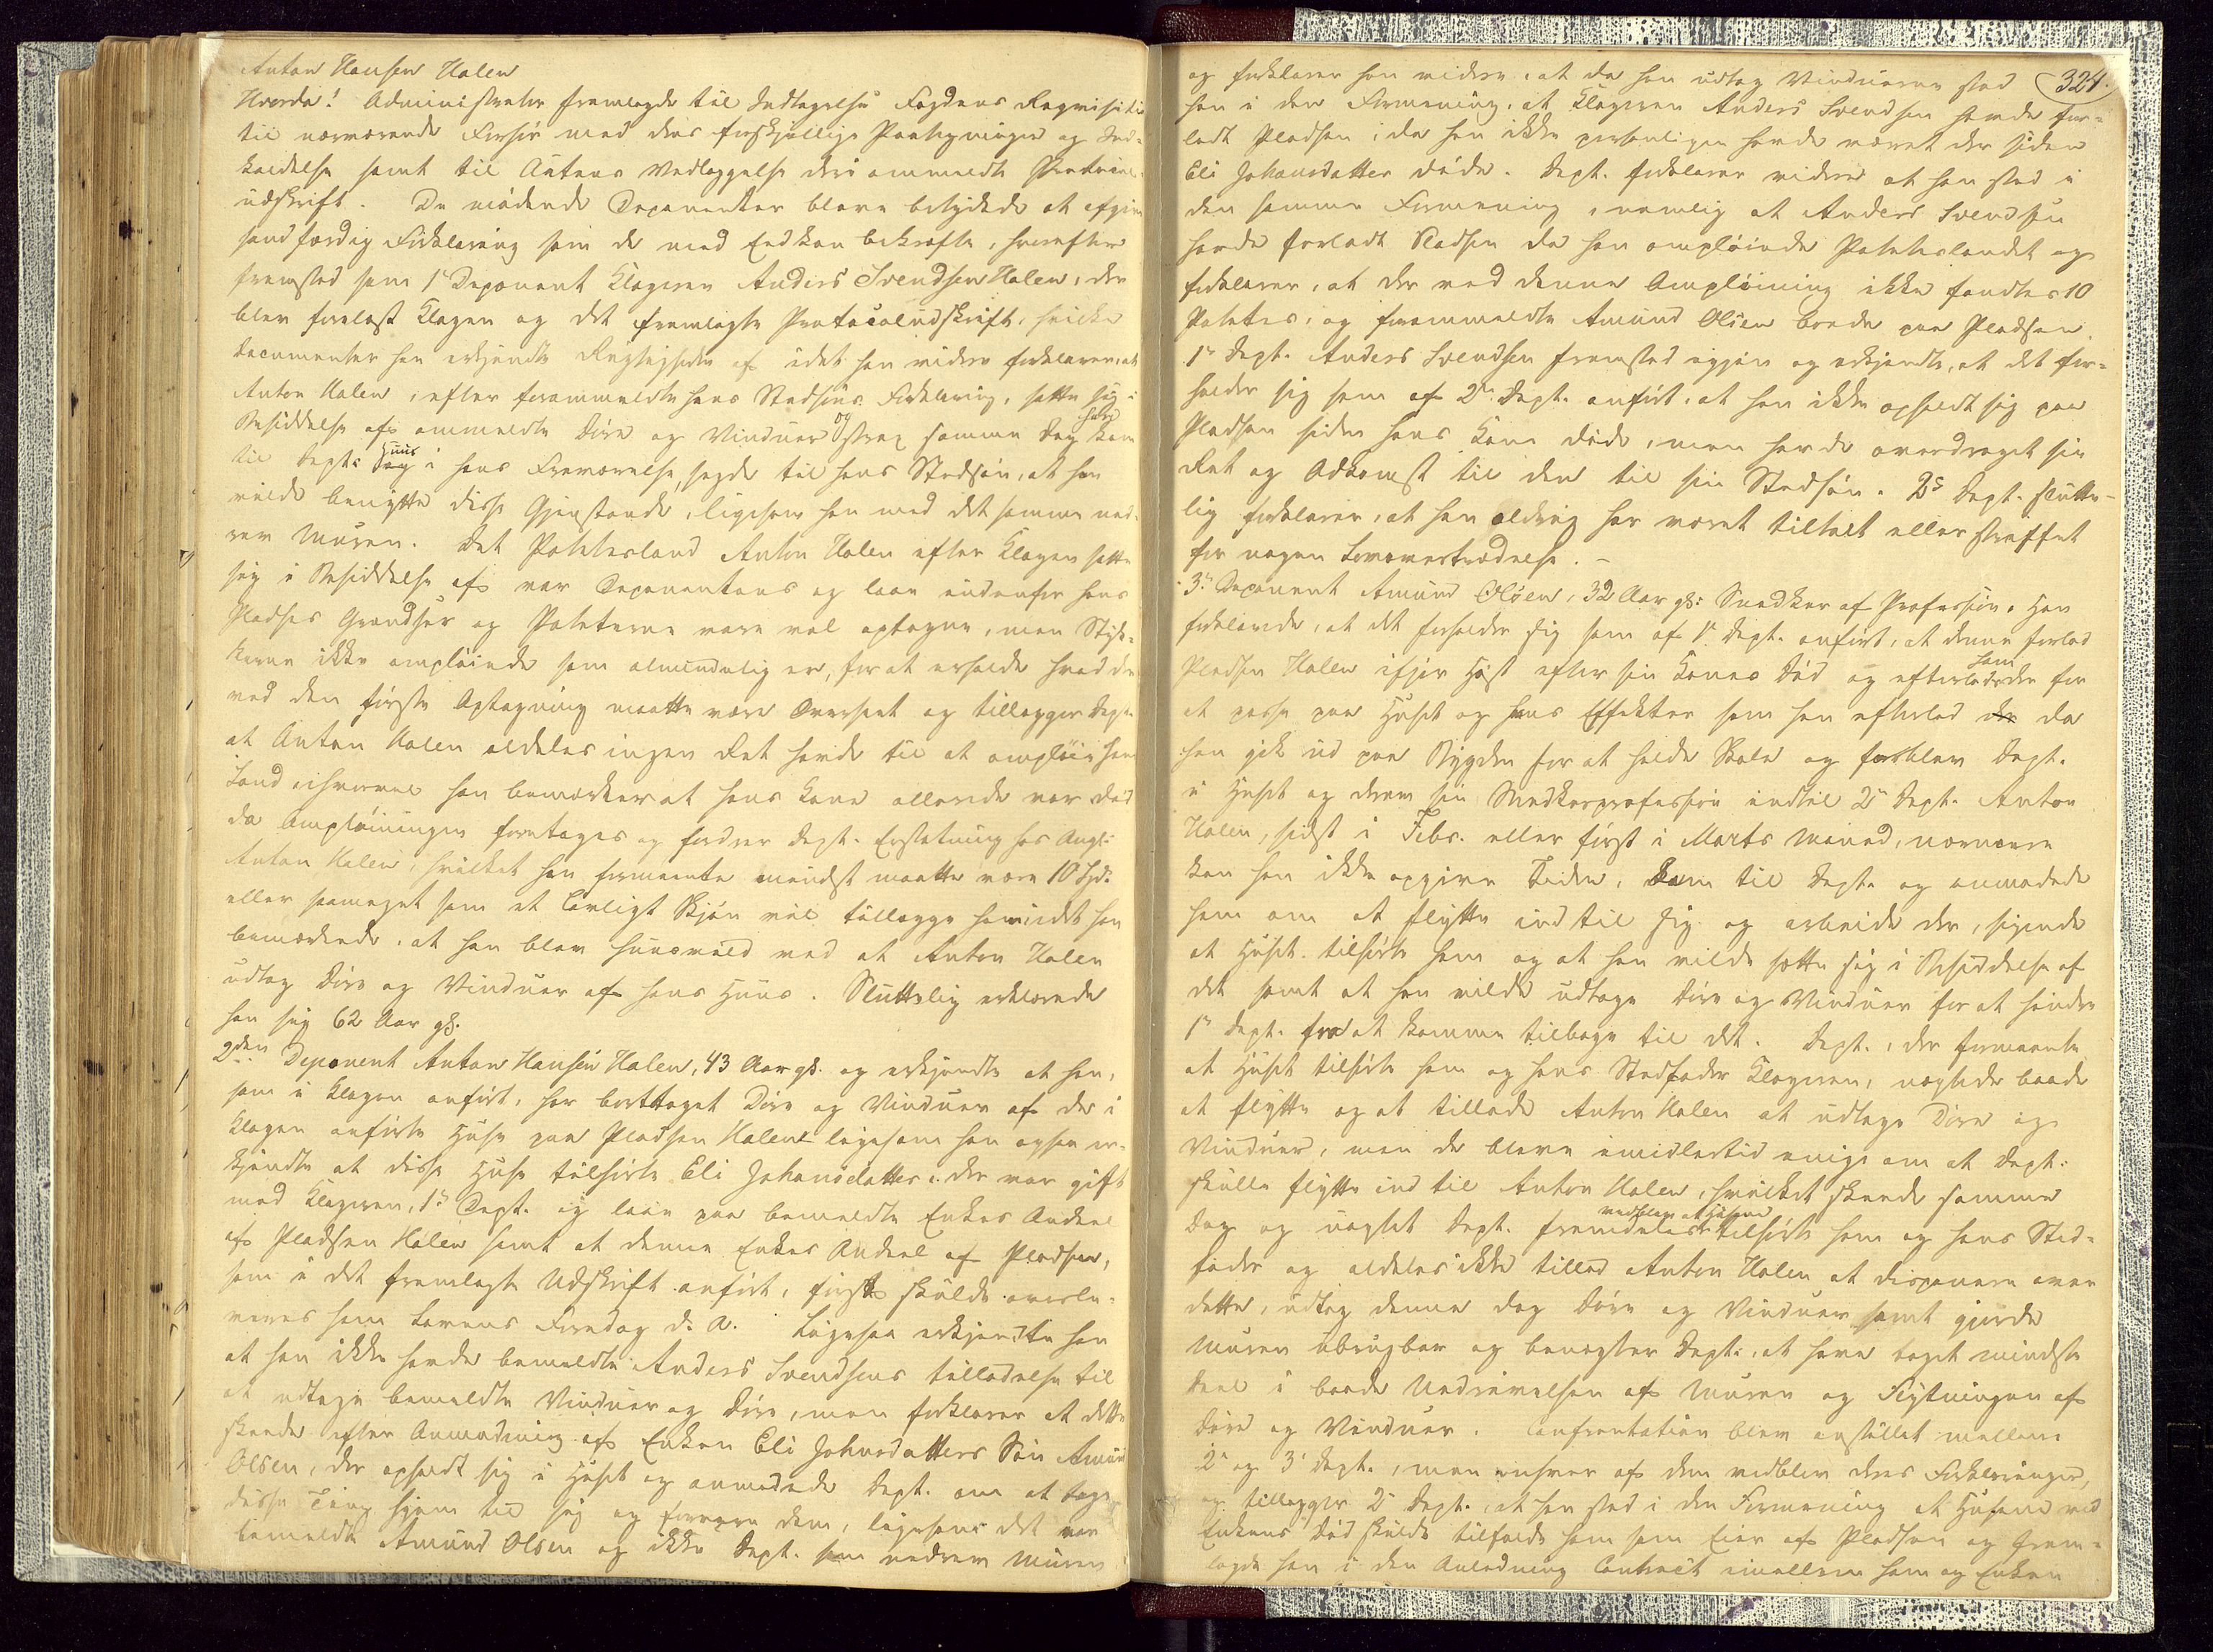 Anton Hansen Halen
Hvorda! Administrator fremlagde til Indtagelse Fogdens Reqvisition
til nærværende Forhør med dens forskjellige Paategninger og Ind-
kaldelse samt til Actens Vedlæggelse den ommeldte Protocol-
udskrift. De mødende Deponenter bleve betydede at afgive
sandfærdig Forklaring som de med Eed kan bekræfte, hvorefter
fremstod som 1ste Deponent Klageren Anders Svendsen Halen, der
blev forelæst Klagen og det fremlagte Protocoludskrift, hvilke
Documenter han erkjendte Rigtigheden af idet han videre forklarer, at
Anton Halen, efter forommeldte hans Stedsøns Forklaring, satte sig i
Besiddelse af ommeldte Døre og Vinduer og strax samme Dag kom
til Depts Huus i hans Fraværelse, sagde til hans Stedsøn, at han
vilde benytte disse Gjenstande, ligesom han med det samme ned-
rev Muren. Det Potetesland Anton Halen efter Klagen satte
sig i Besiddelse af var Deponentens og laae indenfor hans
Pladses Grændser og Poteterne vare vel optagne, men Styk-
kerne ikke ompløiede som almindelig er, for at erholde hvad der
ved den første Optagning maatte være Overseet og tillægger Dept.
at Anton Halen aldeles ingen Ret havde til at ompløie hans
Land ihvorvel han bemærker at hans Kone allerede var død
da Ompløiningen foretoges og fordrer Dept. Erstatning hos Angl.
Anton Halen, hvilket han formeente mindst maatte være 10 Spd.
eller saameget som et lovligt Skjøn vil tillægge ham idet han
bemærkede, at han blev huusvild ved at Anton Halen
udtog Døre og Vinduer af hans Huus. Sluttelig erklærede
han sig 62 Aar gl.
2den Deponent Anton Hansen Halen, 43 Aar gl. og erkjendte at han,
som i Klagen anført, har borttaget Døre og Vinduer af de i
Klagen anførte Huse paa Pladsen Halen ligesom han ogsaa er-
kjendte at disse Huse tilhørte Eli Johansdatter, der var gift
med Klageren, 1ste Dept. og laae paa bemeldte Enkes Andeel
af Pladsen Halen samt at denne Enkes Andeel af Pladsen,
som i det fremlagte Udskrift anført, først skulde overle-
veres ham Lovens Faredag d. A. Ligesaa erkjendte han
at han ikke havde bemeldte Anders Svendsens tilladelse til
at udtage bemeldte Vinduer og Døre, men forklarer at dette
skeede efter Anmodning af Enken Eli Johnsdatters Søn Amund
Olsen, der opholdt sig i Huset og anmodede Dept. om at tage
disse Ting hjem til sig og forvare dem, ligesom det var
bemeldte Amund Olsen og ikke Dept. som nedrev Muren
324.
og forklarer han videre, at da han udtog Vinduerne stod
han i den Formening, at Klageren Anders Svendsen havde for-
ladt Pladsen, da han ikke personligen havde været der siden
Eli Johansdatter døde. Dept. forklarer videre at han stod i
den samme Formening, nemlig at Anders Svendsen
havde forladt Pladsen da han ompløiede Poteteslandet og
forklarer, at der ved denne Ompløining ikke fandtes 10
Potetes, og forommeldte Amund Olsen boede paa Pladsen.
1ste Dept. Anders Svendsen fremstod igjen og erkjendte, at det for-
holder sig som af 2den Dept. anført, at han ikke opholdt sig paa
Pladsen siden hans Kone døde, men havde overdraget sin
Ret og Adkomst til den til sin Stedsøn. 2den Dept. slutte-
lig forklarer, at han aldrig har været tiltalt eller straffet
for nogen Lovovertrædelse.
3die Deponent Amund Olsen, 32 Aar gl. Snedker af Profession. Han
forklarede, at det forholder sig som af 1ste Dept. anført, at denne forlod
Pladsen Halen ifjor Høst efter sin Kones Død og efterlod ham der for
at passe paa Huset og hans Effekter som han efterlod da
han gik ud paa Bygden for at holde Skole og forblev Dept.
i Huset og drev sin Snedkerprofession indtil 2den Dept. Anton
Halen, sidst i Febr. eller først i Marts Maaned, nærmere
kan han ikke opgive Tiden, kom til Dept. og anmodede
ham om at flytte ind til sig og arbeide der, sigende
at Huset tilhørte ham og at han vilde sætte sig i Besiddelse af
det samt at han vilde udtage Døre og Vinduer for at hindre
1ste Dept. fra at komme tilbage til det. Dept., der formeente
at Huset tilhørte ham og hans Stedfader Klageren, nægtede baade
at flytte og at tillade Anton Halen at udtage Døre og
Vinduer, men de bleve imidlertid enige om at Dept.
skulle flytte ind til Anton Halen, hvilket skeede samme
Dag og uagtet Dept. fremdeles vedblev at Husene tilhørte ham og hans Sted-
fader og aldeles ikke tillod Anton Halen at disponere over
dette, udtog denne dog Døre og Vinduer samt gjorde
Muren ubrugbar og benægter Dept., at have taget mindste
Deel i baade Nedrivelsen af Muren og Flytningen af
Døre og Vinduer. Confrontation blev anstillet mellem
2den og 3die Dept., men enhver af dem vedblev deres Forklaringer,
og tillægger 2den Dept., at han stod i den Formening at Husene ved
Enkens Død skulde tilfalde ham som Eier af Pladsen og frem-
lagde han i den Anledning Contract imellem ham og Enken